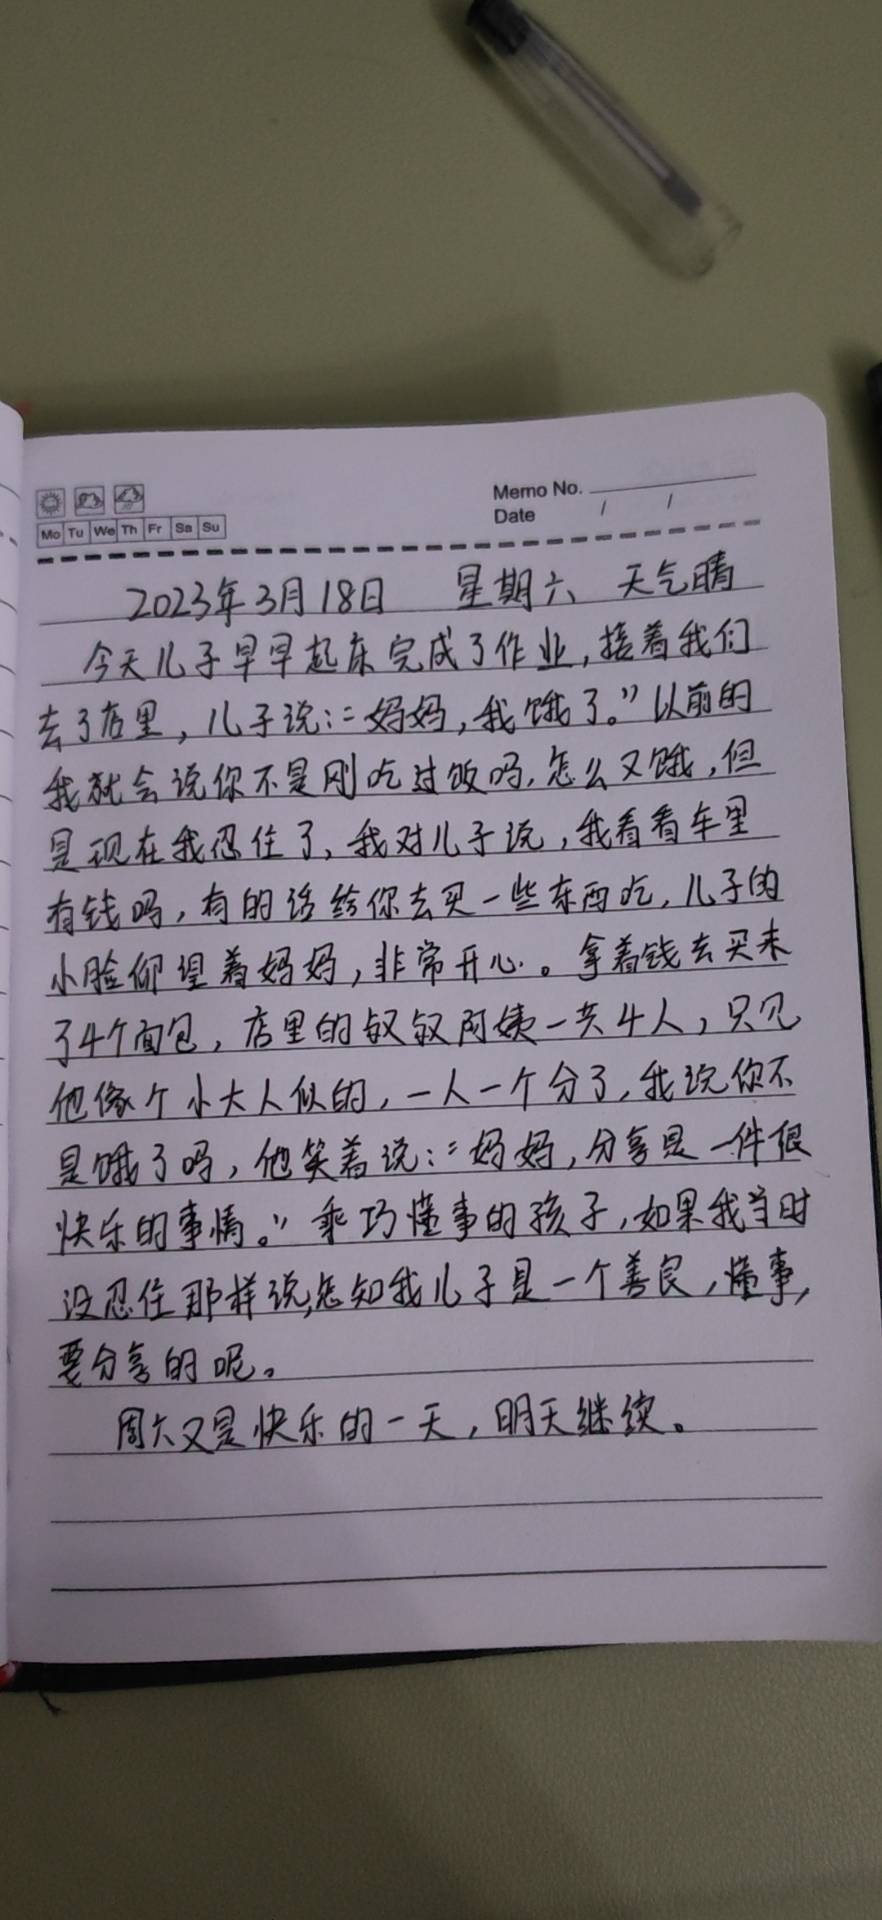 Memo No.
Date / /
Mo Tu We Th Fr Sa Su
2023年3月18日 星期六 天气晴
今天儿子早早起床完成了作业,接着我们
去了店里,儿子说:“妈妈,我饿了。”以前的
我就会说你不是刚吃过饭吗,怎么又饿,但
是现在我忍住了,我对儿子说,我看看车里
有钱吗,有的话给你去买一些东西吃,儿子的
小脸仰望着妈妈,非常开心。拿着钱去买来
了4个面包,店里的叔叔阿姨一共4人,只见
他像个小大人似的,一人一个分了,我说你不
是饿了吗,他笑着说:“妈妈,分享是一件很
快乐的事情。”乖巧懂事的孩子,如果我当时
没忍住那样说,怎知我儿子是一个善良,懂事,
要分享的呢。
周六又是快乐的一天,明天继续。